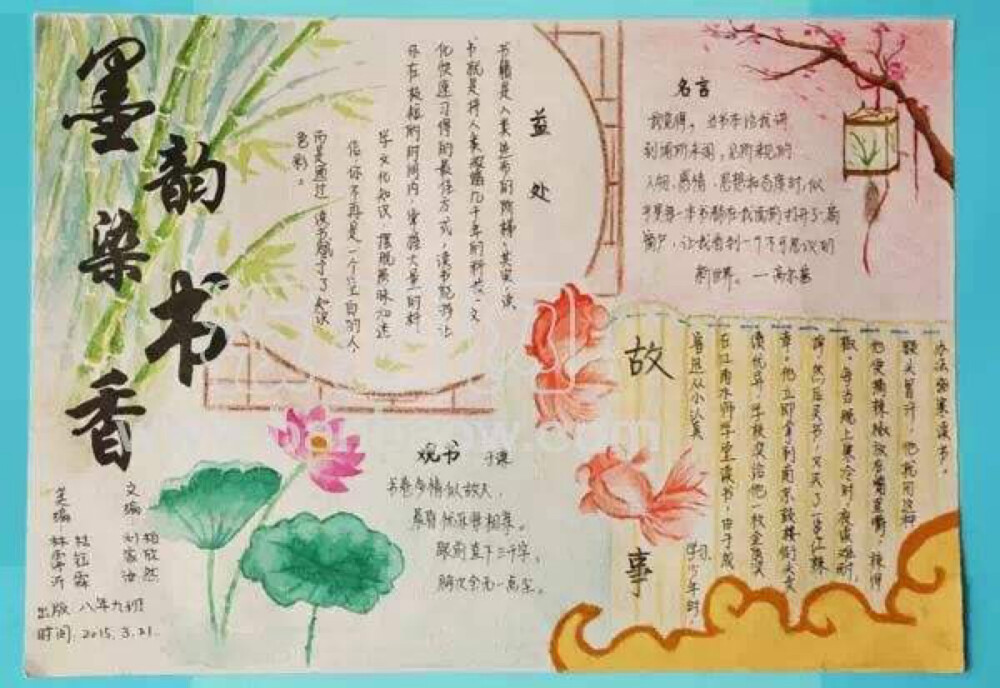 墨韵染书香
益处
书籍是人类进步的阶梯,其实,读
书就是将人类激缩几千年的科学、文
化快速习得的最佳方式,读书能够让
你在极短的时间内,掌握大量的科
学文化知识,摆脱愚昧和迷
信,你不再是一个空白的人,
而是通过读书赋予了知识
色彩。
名言
我觉得,当书本给我讲
到闻所未闻,见所未见的
人物、感情、思想和态度时,似
乎是每一本书都在我面前打开了一扇
窗户,让我看到一个不可思议的
新世界。—高尔基
故事
鲁迅从小认真学习,少年时,
在江南水师学堂读书,由于成
绩优异,学校发给他一枚金质奖
章,他立即拿到南京鼓楼街头卖
然后买书,又买了一串红辣
椒,每当晚上寒冷时,夜读难耐,
他便摘辣椒放在嘴里嚼,辣得
额头冒汗,他就用这种
办法驱寒读书。
观书 于谦
书卷多情似故人,
晨昏忧乐每相亲。
眼前直下三千字,
胸次全无一点尘。
文编 柏欣然
刘家汝
美编 林钰霖
林雪沂
出版 八年九班
时间:2015.3.21.